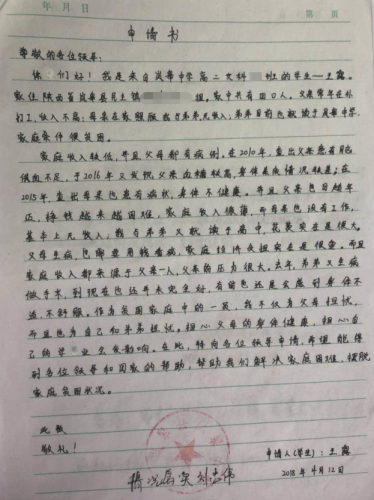 年 月 日 第 页
申请书
尊敬的各位领导:
你们好!我是来自岚皋中学高二文科 班的学生—王露。
家住陕西省岚皋县民主镇 组,家中共有四口人。父亲常年在外
打工,收入不高;母亲在家照顾 弟弟,无收入;弟弟目前也就读于岚皋中学,
家庭条件很贫困。
家庭收入较低,并且父母都有病例。在2010年,查出父亲患有
不足,于2016年又发现父亲血糖较高,身体素质情况较差;在
2015年,查出母亲也患有 病状,身体不健康。并且父亲也日趋年
迈,挣钱越来越困难,家庭收入微薄,而母亲也没有工作,
基本上无收入;我与弟弟又就读于高中,花费实在是很大。
父母生病,也都要用钱看病,家庭经济负担实在是很重。而且
家庭收入都来源于父亲一人,父亲的压力很大。去年,弟弟又生病
做手术,到现在也还并未完全好,有时也还是会感到身体不
适,不舒服。作为贫困家庭中的一员,我不仅为父母担忧,
而且也为自己和弟弟担忧。担心父母的身体健康,担心自
己的学业会受影响。在此,特向各位领导申请,希望能得
到各位领导和国家的帮助,帮助我们解决家庭困难,摆脱
家庭贫困状况。
此致
敬礼!
申请人(学生):王露
2018年4月12日
情况属实